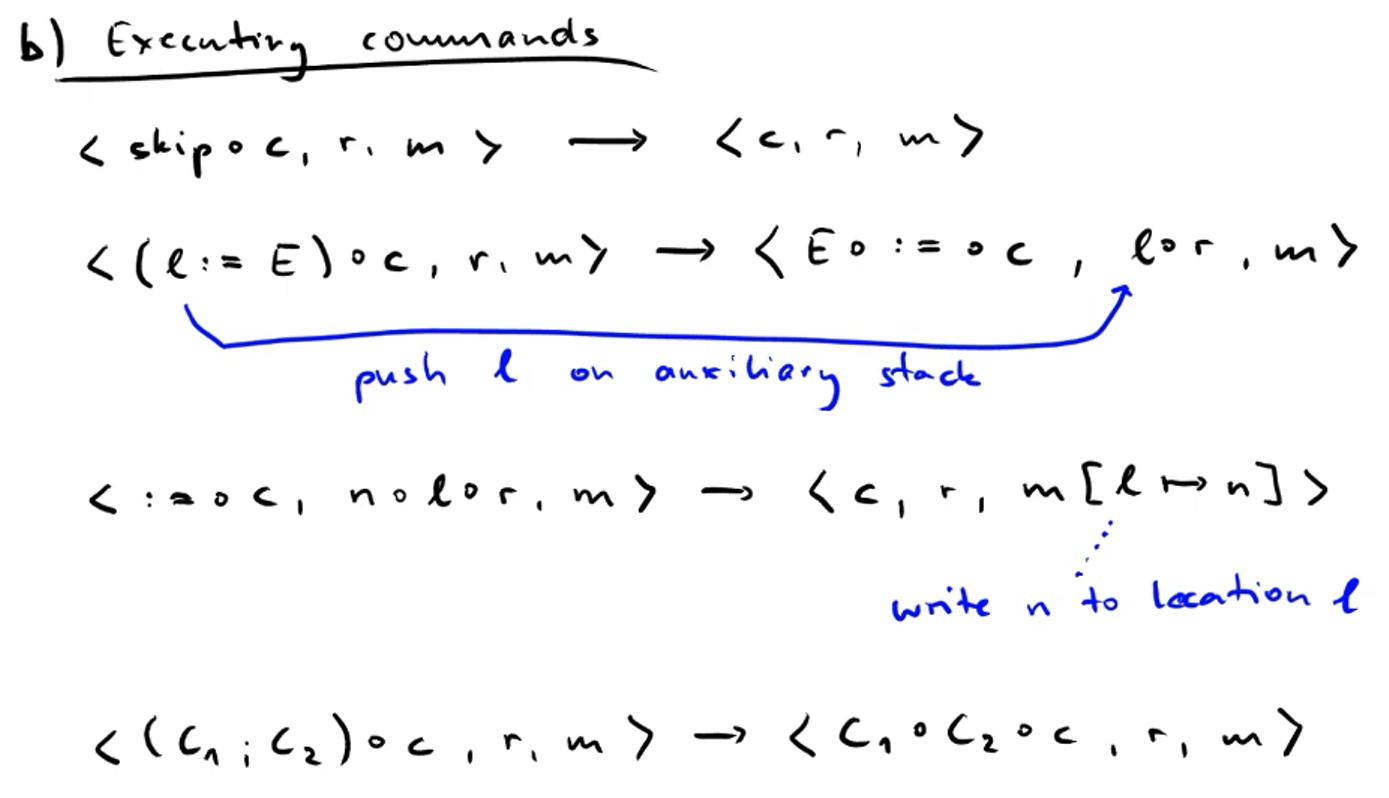 b) Executing commands
< skip ∘ c, r, m > → < c, r, m >
< (l := E) ∘ c, r, m > → < E ∘ := ∘ c, l ∘ r, m >
push l on auxiliary stack
< := ∘ c, n ∘ l ∘ r, m > → < c, r, m [l ↦ n] >
write n to location l
< (C₁ ; C₂) ∘ c, r, m > → < C₁ ∘ C₂ ∘ c, r, m >